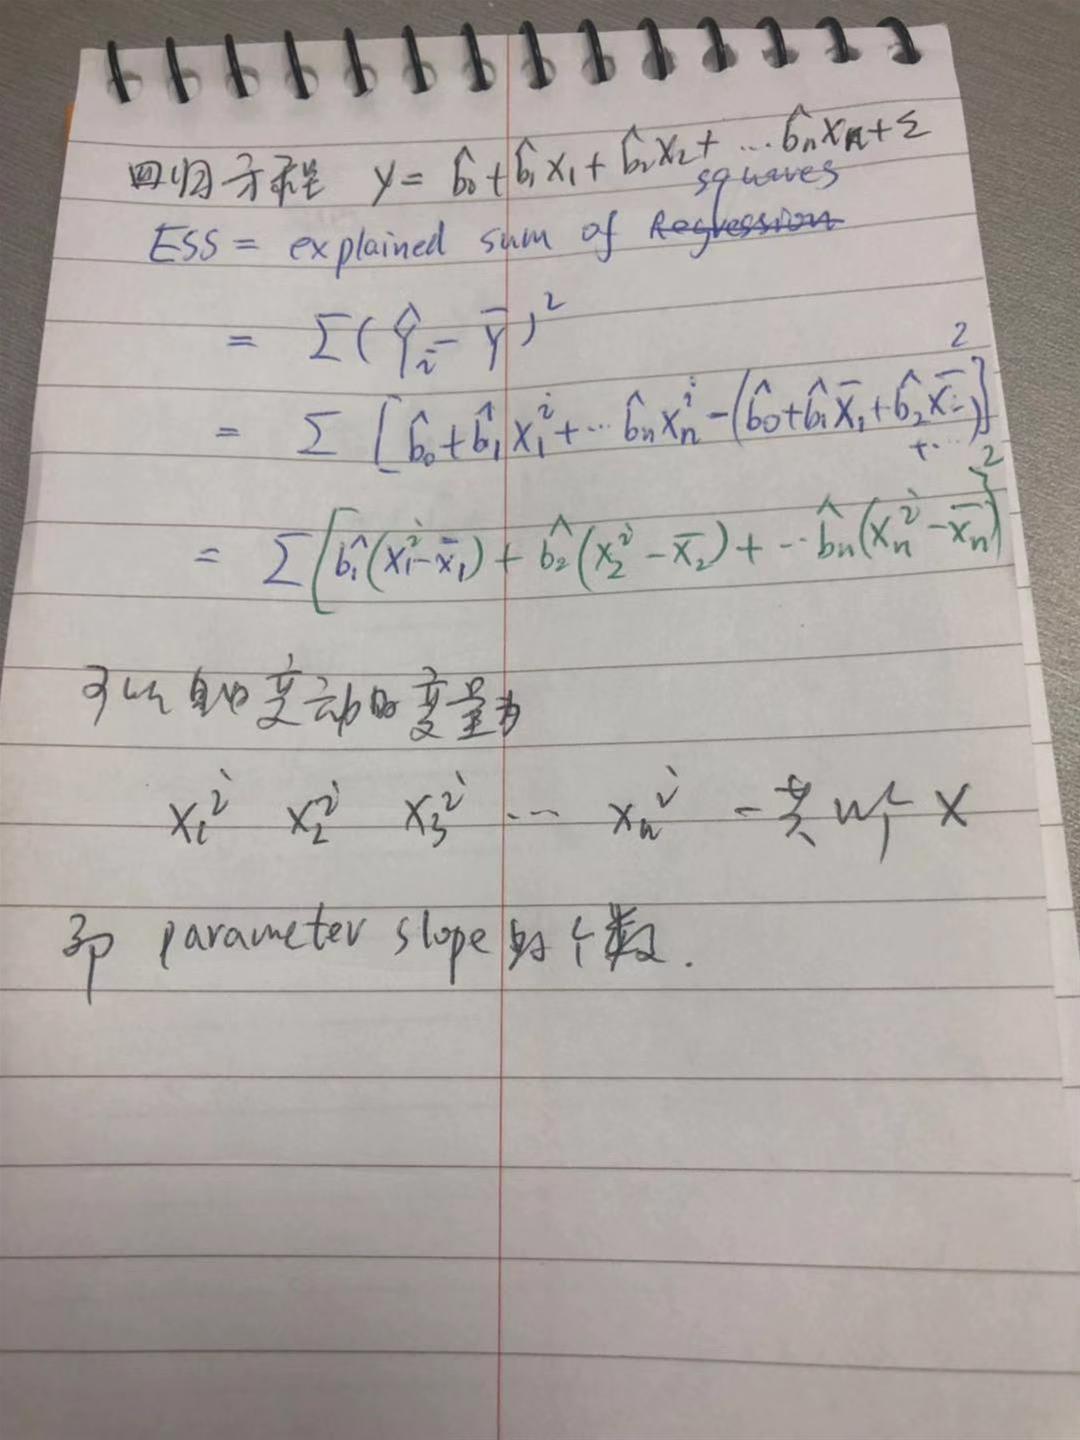 回归方程 y = b̂₀ + b̂₁x₁ + b̂₂x₂ + ... b̂ₙxₙ + Σ
squares
ESS = explained sum of Regression
= Σ(Ŷᵢ - Ȳ)²
= Σ [b̂₀ + b̂₁x₁ⁱ + ... b̂ₙxₙⁱ - (b̂₀ + b̂₁x̄₁ + b̂₂x̄₂ + ...)]²
= Σ[b̂₁(x₁ⁱ - x̄₁) + b̂₂(x₂ⁱ - x̄₂) + ... b̂ₙ(xₙⁱ - x̄ₙ)]²
可以自由变动的变量为
x₁ⁱ x₂ⁱ x₃ⁱ ... xₙⁱ 一共n个X
即 parameter slope 的个数.